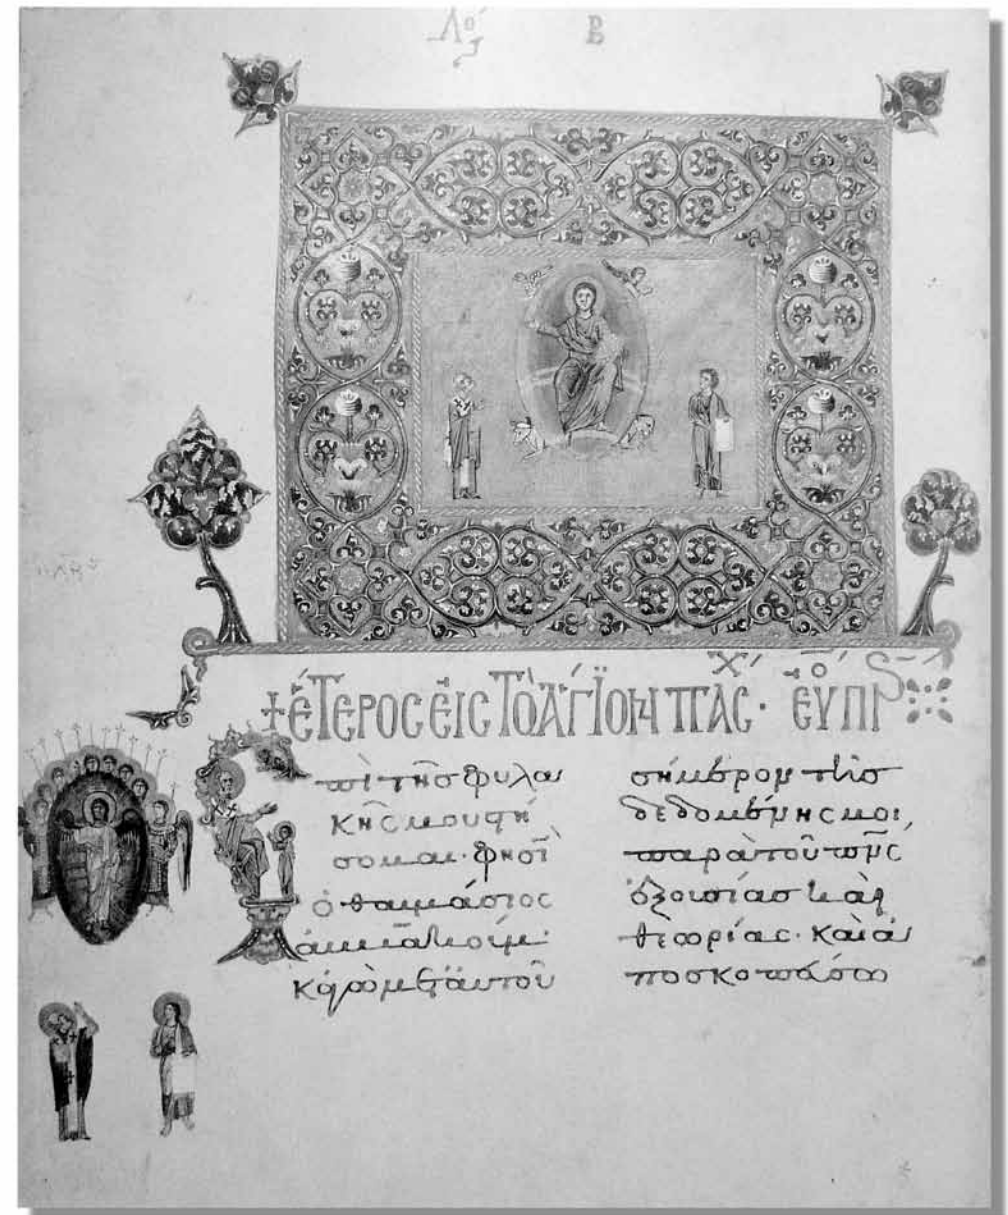 Λο Β
+ ἕτερος εἰς τὸ ἅγιον πάσχ·
Ἐπὶ τῆς φυλα
κῆς μου στή
σομαι· φησὶ
ὁ θαυμάσιος
ἀμβακούμ·
κἀγὼ μετ' αὐτοῦ
σήμερον τῆς
δεδομένης μοι,
παρὰ τοῦ πνς
ἐξουσίας καὶ
θεωρίας· καὶ ἀ
ποσκοπεύσω